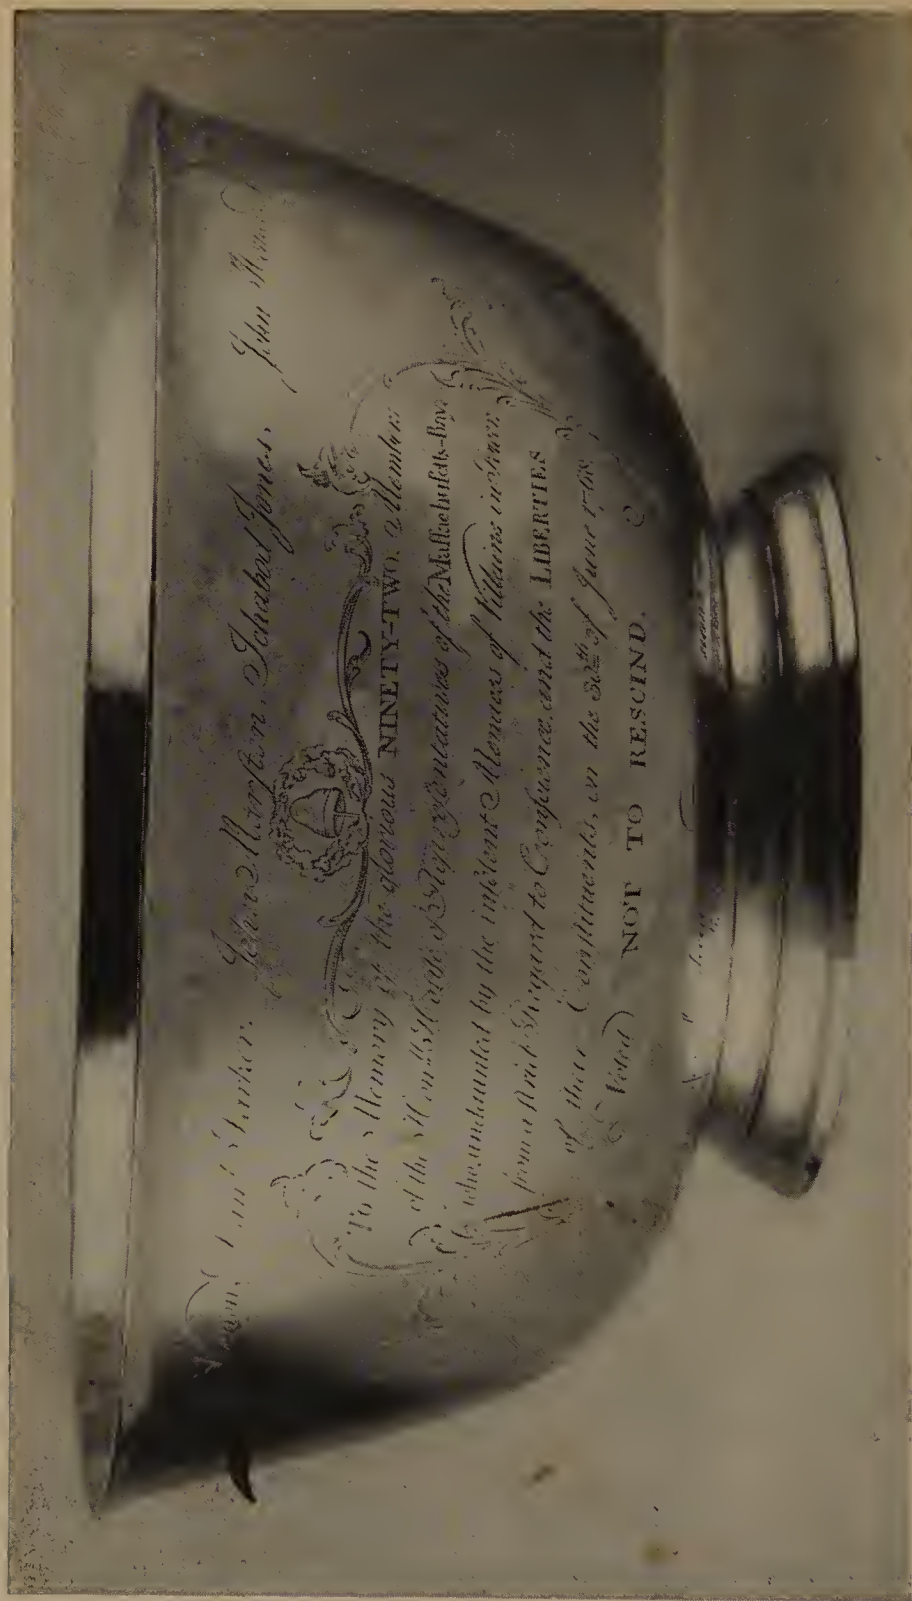 John Marston. Ichabod Jones. John
To the Memory of the glorious NINETY-TWO Members
of the Honbl House of Representatives of the Maſſachuſetts-Bay
who, undaunted by the inſolent Menaces of Villains in Power,
from a ſtrict Regard to Conſcience, and the LIBERTIES
of their Conſtituents, on the 30th of June 1768
Voted NOT TO RESCIND.